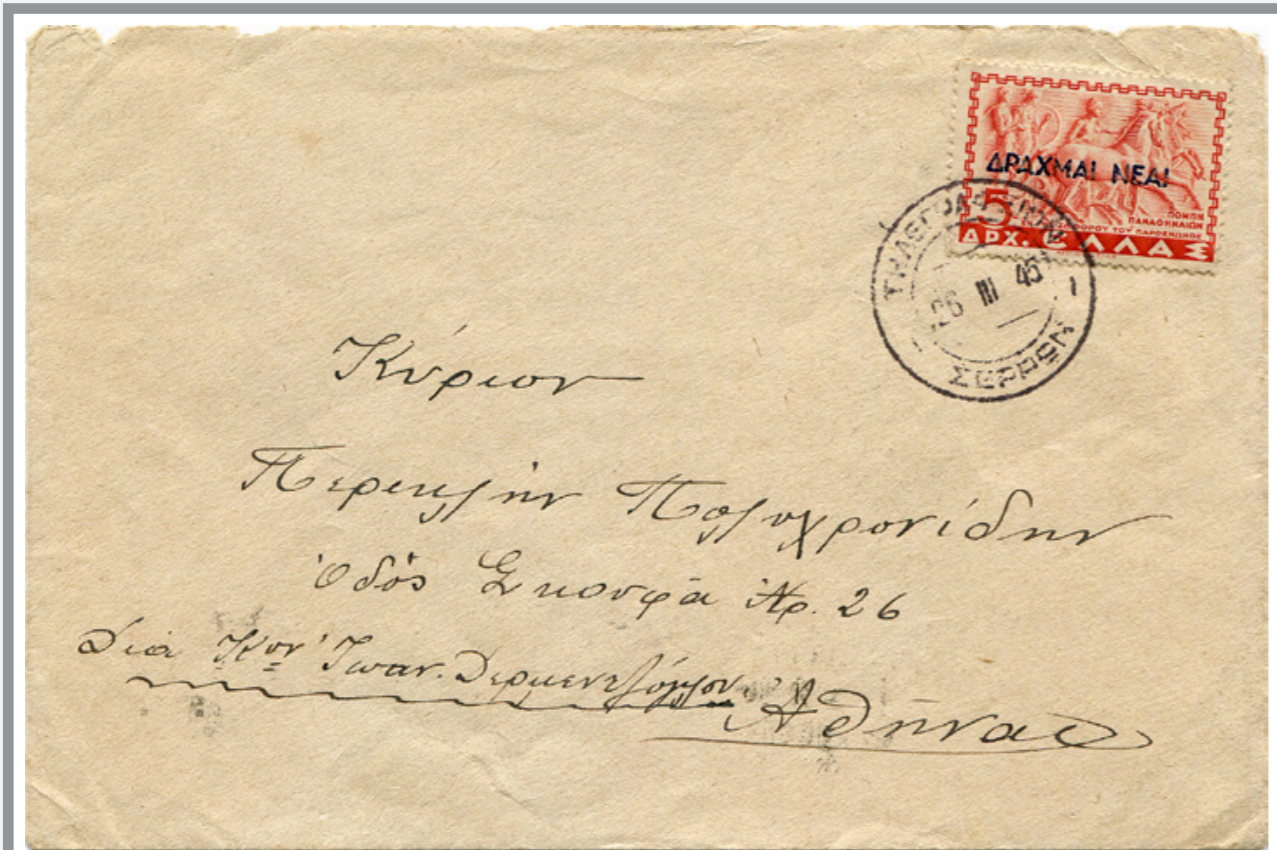 ΔΡΑΧΜΑΙ ΝΕΑΙ
ΠΟΜΠΗ
ΠΑΝΑΘΗΝΑΙΩΝ
ΤΟΥ ΠΑΡΘΕΝΩΝΟΣ
5
ΔΡΧ. ΕΛΛΑΣ
26 III 45
ΣΕΡΡΩΝ
Κύριον
Περικλήν Πολυχρονίδην
Ὁδός Σκουφᾶ Ἀρ. 26
Διά Κον Ἰωάν. Δερμεντζόγλου
Ἀθήνας